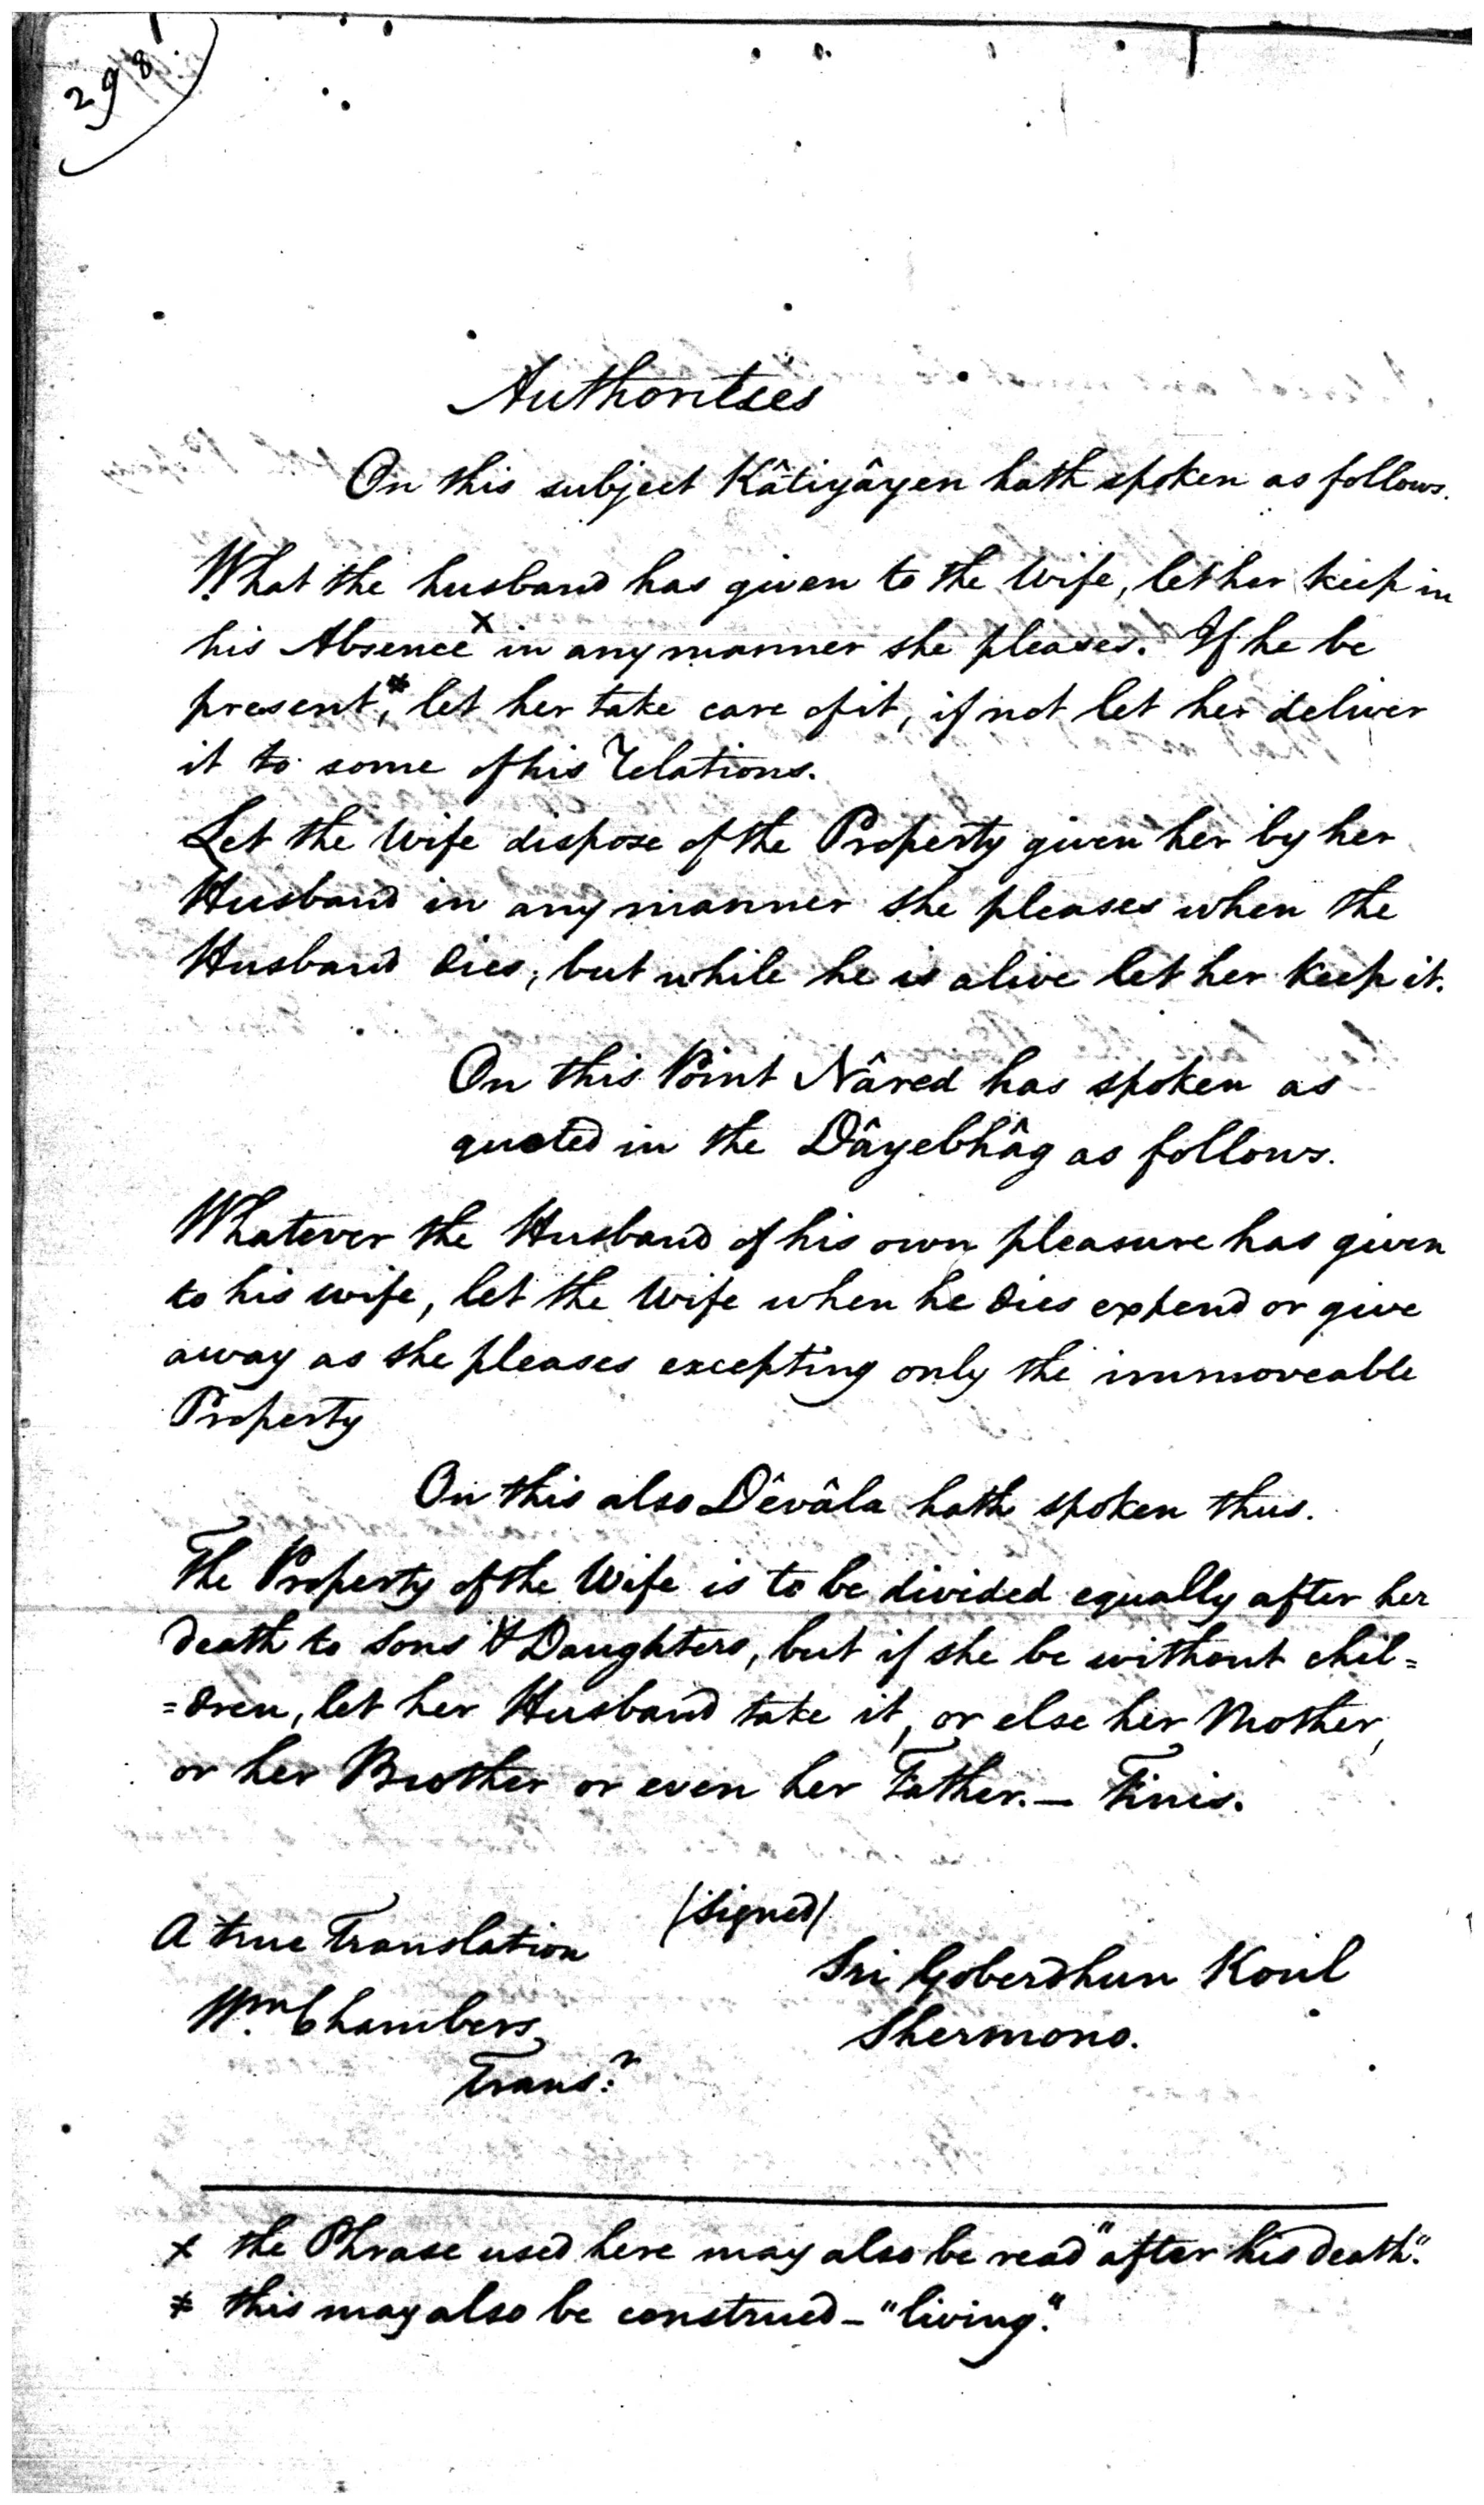 298
Authorities
On this subject Kâtiyâyen hath spoken as follows.
What the husband has given to the Wife, let her keep in
his Absence x in any manner she pleases. If he be
present,* let her take care of it, if not let her deliver
it to some of his Relations.
Let the Wife dispose of the Property given her by her
Husband in any manner she pleases when the
Husband dies, but while he is alive let her keep it.
On this Point Nâred has spoken as
quoted in the Dâyebhâg as follows.
Whatever the Husband of his own pleasure has given
to his wife, let the Wife when he dies expend or give
away as she pleases excepting only the immoveable
Property
On this also Dêvâla hath spoken thus.
The Property of the Wife is to be divided equally after her
death to Sons & Daughters, but if she be without chil=
=dren, let her Husband take it, or else her Mother,
or her Brother or even her Father.— Finis.
(signed)
A true Translation
Sri Goberdhun Koul
Wm Chambers
Shermono.
Transr
x the Phrase used here may also be read "after his death".
* this may also be construed – "living".